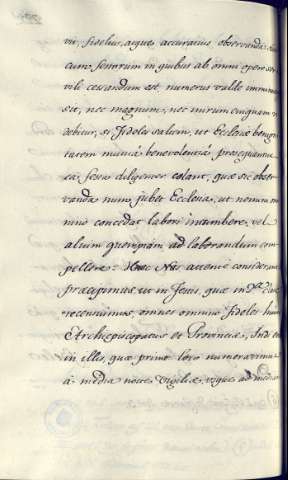 vir, fidelius, atque accuratius observanda
cum festorum in quibus ab omni opere ser
vili cessandum est, numerus valde imminutus
sit, nec magnum, nec mirum cuiquam vi
debitur, si Fideles saltem, ut Ecclesiæ benigni
tatem mutuâ benevolentiâ prosequantur
ea festa diligenter colant, quæ sic obser
vanda nunc jubet Ecclesia, ut nemini om
nino concedat labori incumbere, vel
alium quempiam ad laborandum com
pellere. Hæc Nos attentè considerantes
præcipimus, ut in Festis, quæ in
recensuimus, omnes omnino Fideles hujus
Archiepiscopatus et Provinciæ, Indi
in illis, quæ primo loco numeravimus
a mediâ nocte Vigiliæ, usque ad mediam